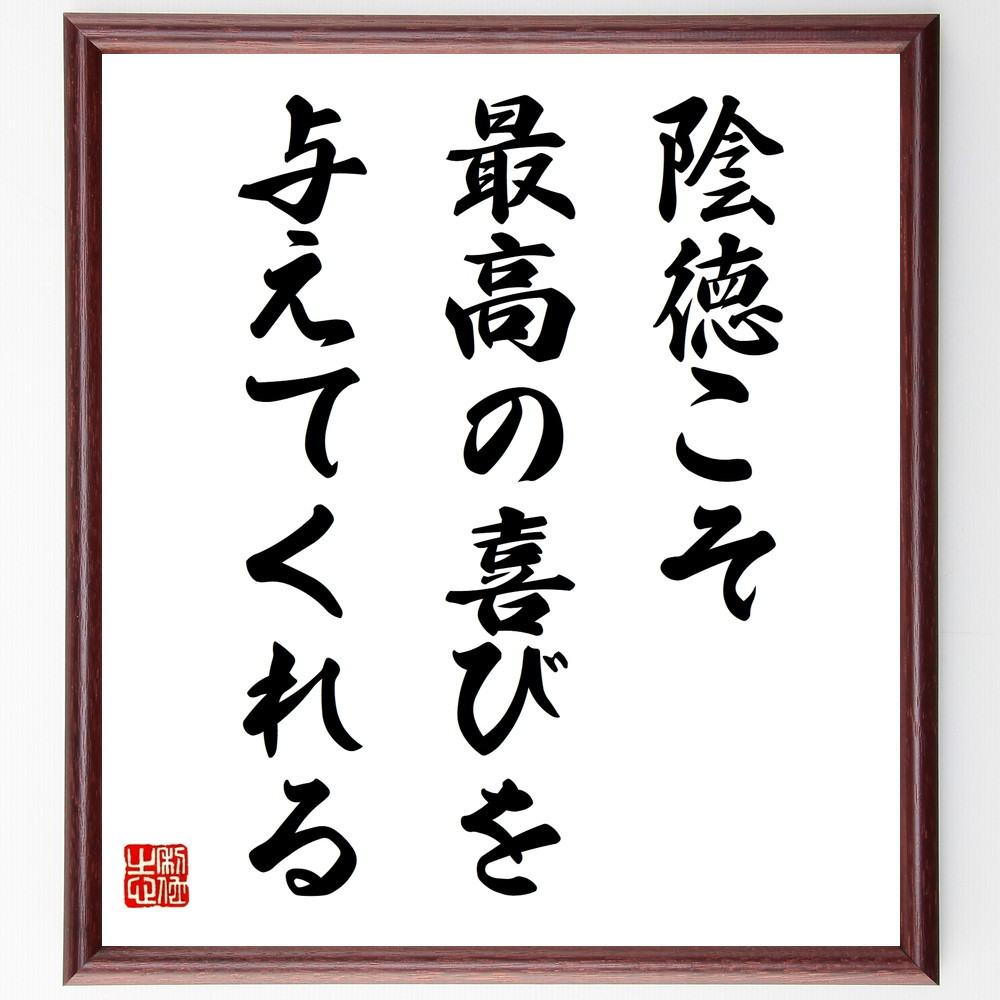 陰徳こそ
最高の喜びを
与えてくれる